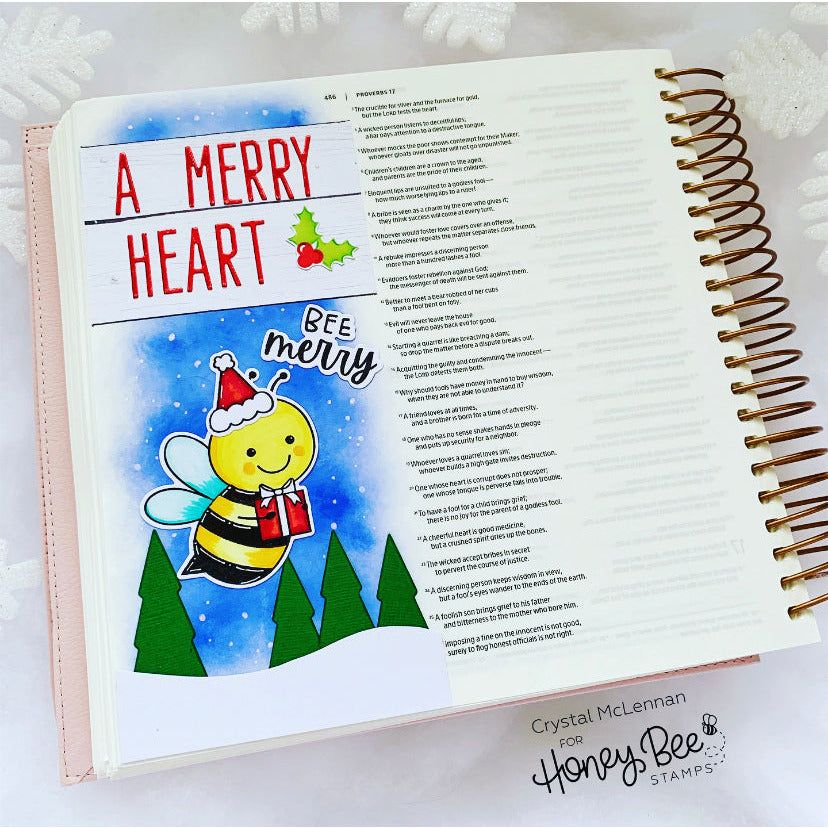 A MERRY
HEART
BEE
merry
486 | PROVERBS 17
3 The crucible for silver and the furnace for gold,
but the LORD tests the heart.
4 A wicked person listens to deceitful lips;
a liar pays attention to a destructive tongue.
5 Whoever mocks the poor shows contempt for their Maker;
whoever gloats over disaster will not go unpunished.
6 Children's children are a crown to the aged,
and parents are the pride of their children.
7 Eloquent lips are unsuited to a godless fool—
how much worse lying lips to a ruler!
8 A bribe is seen as a charm by the one who gives it;
they think success will come at every turn.
9 Whoever would foster love covers over an offense,
but whoever repeats the matter separates close friends.
10 A rebuke impresses a discerning person
more than a hundred lashes a fool.
11 Evildoers foster rebellion against God;
the messenger of death will be sent against them.
12 Better to meet a bear robbed of her cubs
than a fool bent on folly.
13 Evil will never leave the house
of one who pays back evil for good.
14 Starting a quarrel is like breaching a dam;
so drop the matter before a dispute breaks out.
15 Acquitting the guilty and condemning the innocent—
the LORD detests them both.
16 Why should fools have money in hand to buy wisdom,
when they are not able to understand it?
17 A friend loves at all times,
and a brother is born for a time of adversity.
18 One who has no sense shakes hands in pledge
and puts up security for a neighbor.
19 Whoever loves a quarrel loves sin;
whoever builds a high gate invites destruction.
20 One whose heart is corrupt does not prosper;
one whose tongue is perverse falls into trouble.
21 To have a fool for a child brings grief;
there is no joy for the parent of a godless fool.
22 A cheerful heart is good medicine,
but a crushed spirit dries up the bones.
23 The wicked accept bribes in secret
to pervert the course of justice.
24 A discerning person keeps wisdom in view,
but a fool's eyes wander to the ends of the earth.
25 A foolish son brings grief to his father
and bitterness to the mother who bore him.
imposing a fine on the innocent is not good,
surely to flog honest officials is not right.
Crystal McLennan
FOR
Honey Bee
STAMPS